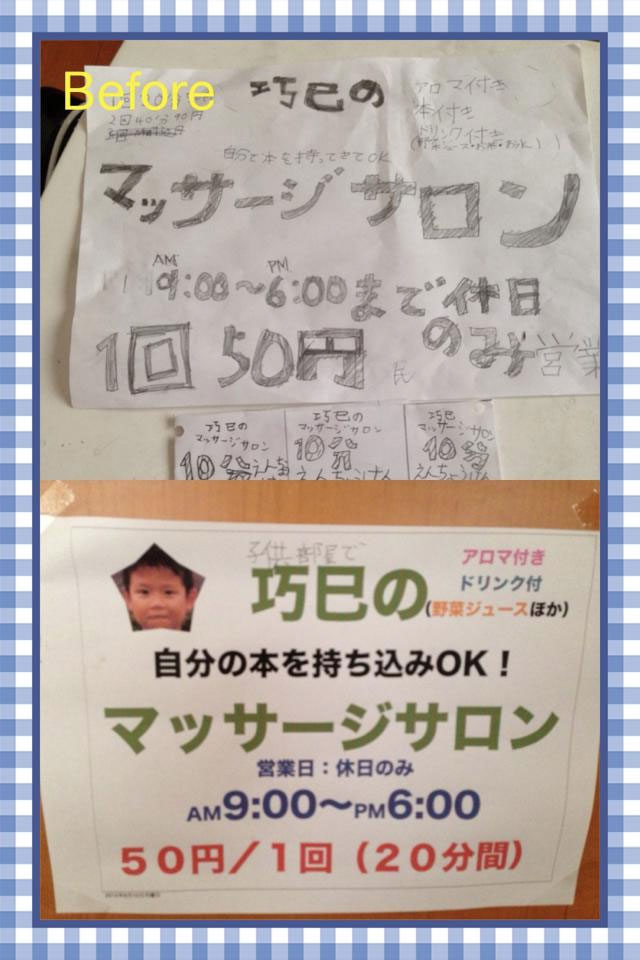 Before
2回40分90円
巧巳の
アロマ付き
本付き
ドリンク付き
自分で本を持ってきてOK
マッサージサロン
AM 9:00〜PM 6:00まで休日
のみ営業
1回 50円
巧巳の
マッサージサロン
10分
巧巳の
マッサージサロン
10分
えんちょうけん
巧巳
マッサージサロン
10分
えんちょうけん
子供部屋で
巧巳の
アロマ付き
ドリンク付
(野菜ジュースほか)
自分の本を持ち込みOK！
マッサージサロン
営業日：休日のみ
AM9:00〜PM6:00
50円／1回（20分間）